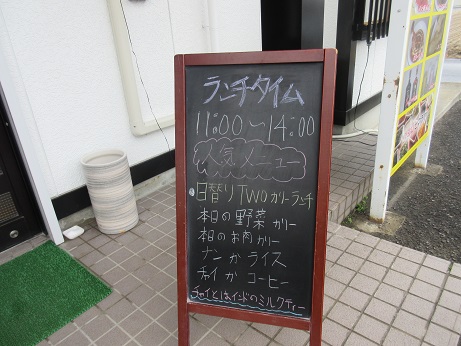 ランチタイム
11:00～14:00
人気メニュー
日替りTWOカリーランチ
本日の野菜カリー
本日のお肉カリー
ナンかライス
チャイかコーヒー
チャイとはインドのミルクティー